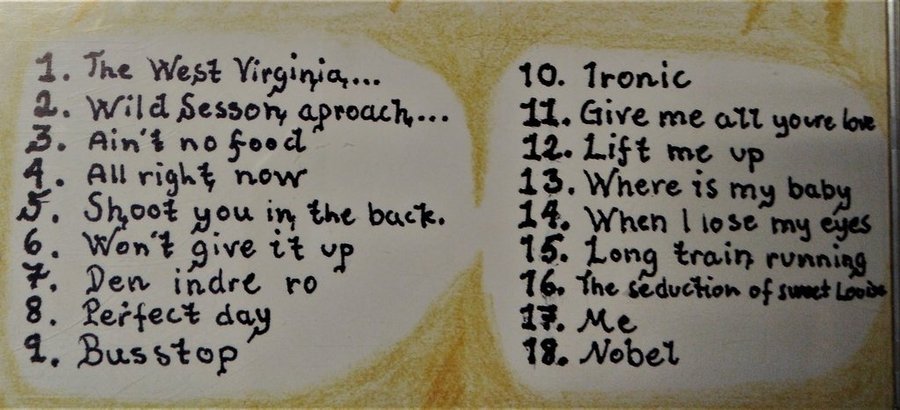 1. The West Virginia...
2. Wild Sesson aproach...
3. Ain't no food
4. All right now
5. Shoot you in the back.
6. Won't give it up
7. Den indre ro
8. Perfect day
9. Busstop
10. Ironic
11. Give me all youre love
12. Lift me up
13. Where is my baby
14. When I lose my eyes
15. Long train running
16. The seduction of sweet Louise
17. Me
18. Nobel